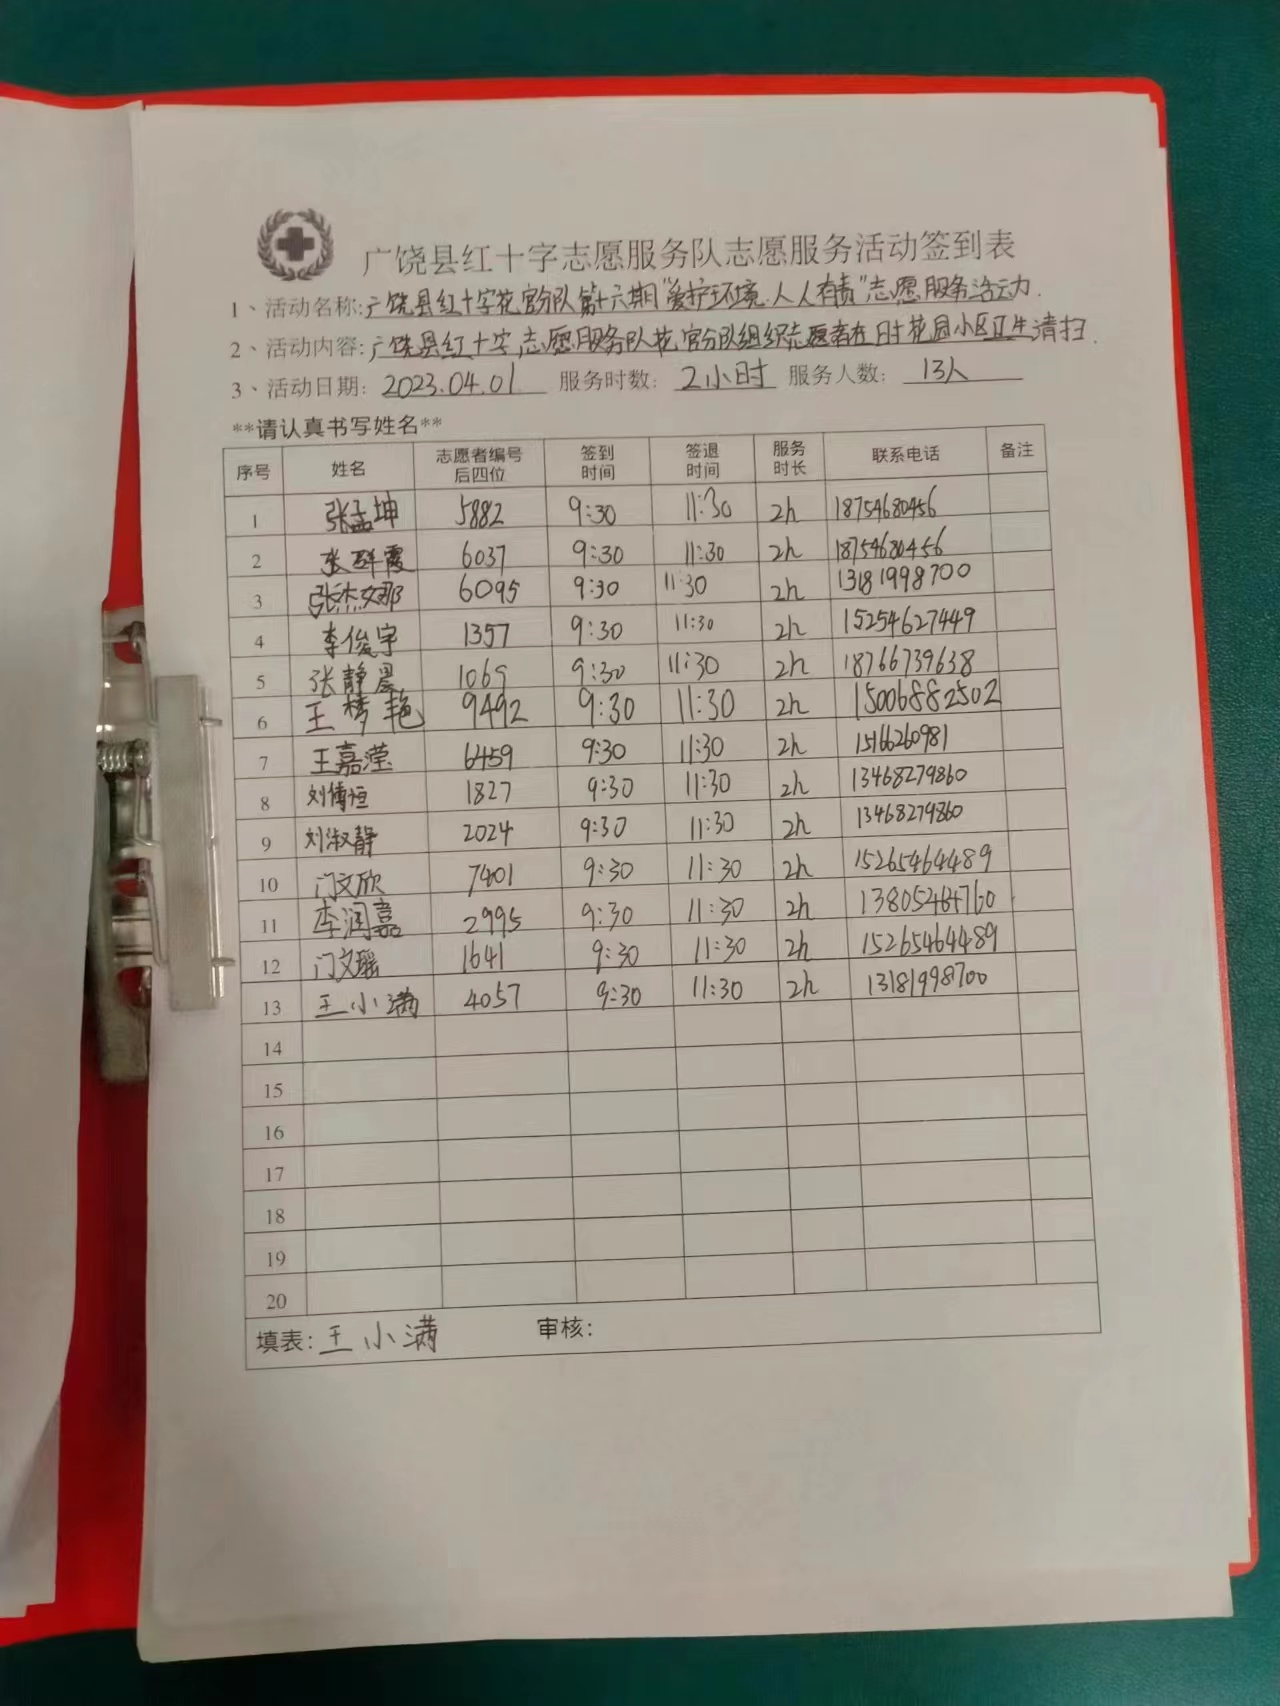 广饶县红十字志愿服务队志愿服务活动签到表
1、活动名称:广饶县红十字花官分队第十六期"爱护环境.人人有责"志愿服务活动.
2、活动内容:广饶县红十字志愿服务队花官分队组织志愿者在日村花园小区卫生请扫.
3、活动日期: 2023.04.01 服务时数: 2小时 服务人数: 13人
**请认真书写姓名**
序号 姓名 志愿者编号后四位 签到时间 签退时间 服务时长 联系电话 备注
1 张孟坤 5882 9:30 11:30 2h 18754680456
2 张群霞 6037 9:30 11:30 2h 18754680456
3 张杰娜 6095 9:30 11:30 2h 13181998700
4 李俊宇 1357 9:30 11:30 2h 15254627449
5 张静晨 1069 9:30 11:30 2h 18766739638
6 王梦艳 9492 9:30 11:30 2h 15006882502
7 王嘉滢 6459 9:30 11:30 2h 15166260981
8 刘博恒 1827 9:30 11:30 2h 13468279860
9 刘淑静 2024 9:30 11:30 2h 13468279860
10 门文欣 7401 9:30 11:30 2h 15265464489
11 李润嘉 2995 9:30 11:30 2h 13805464760
12 门文瑶 1641 9:30 11:30 2h 15265464489
13 王小满 4057 9:30 11:30 2h 13181998700
14
15
16
17
18
19
20
填表: 王小满 审核: